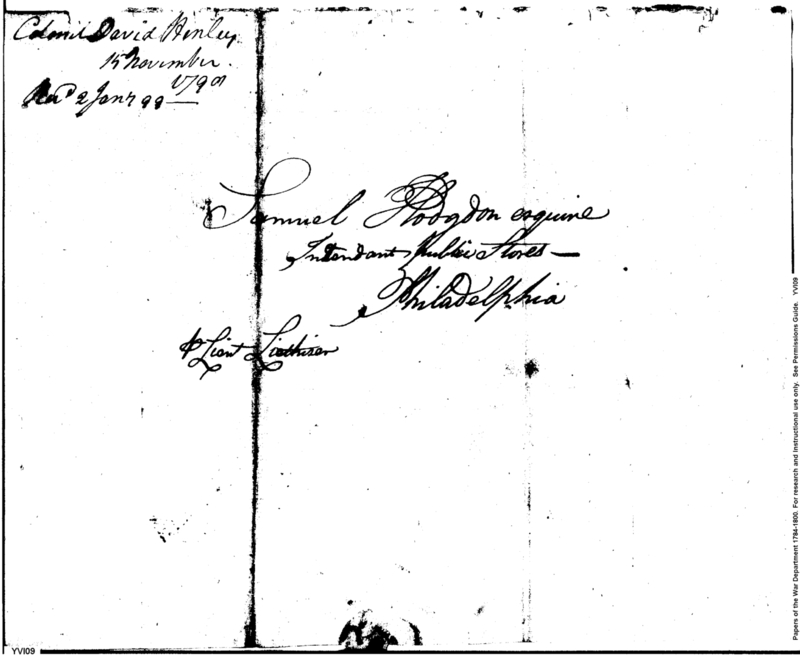 Colonel David Henley
15 November
1798
Rec'd 2 Jany 99 —
Samuel Hodgdon esquire
Intendant Public Stores —
Philadelphia
Lieut
YVI09
Papers of the War Department 1784-1800. For research and instructional use only. See Permissions Guide. YVI09